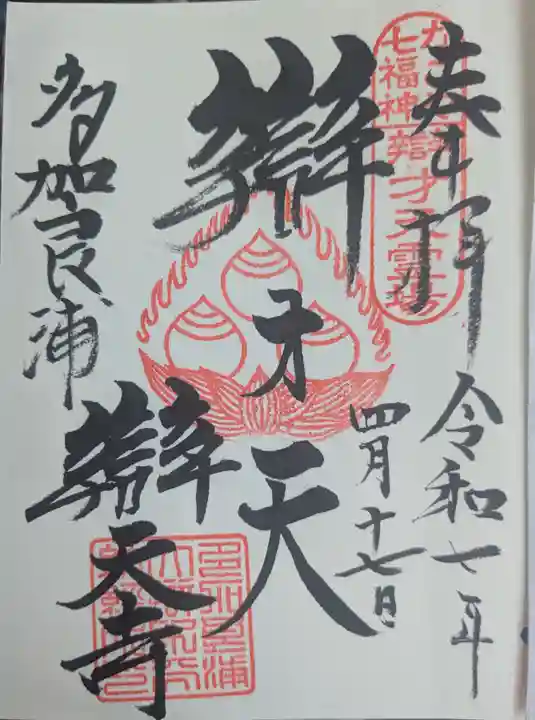 奉拝
七福神
辯才天霊場
令和七年
四月十七日
辯才天
多加良浦
辯天寺